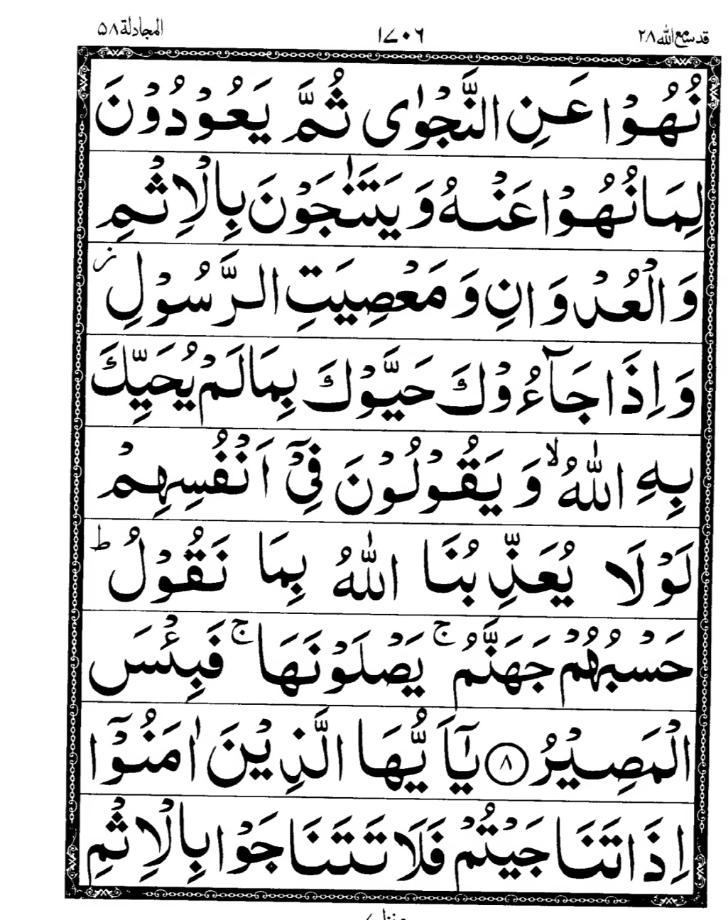 قد سمع الله ۲۸ ۱۷۰۶ المجادلة ۵۸
نُهُوۡا عَنِ النَّجۡوٰى ثُمَّ يَعُوۡدُوۡنَ
لِمَا نُهُوۡا عَنۡهُ وَ يَتَنٰجَوۡنَ بِالۡاِثۡمِ
وَ الۡعُدۡوَانِ وَ مَعۡصِيَتِ الرَّسُوۡلِ ز
وَ اِذَا جَآءُوۡكَ حَيَّوۡكَ بِمَا لَمۡ يُحَيِّكَ
بِهِ اللّٰهُ ۙ وَ يَقُوۡلُوۡنَ فِىۡۤ اَنۡفُسِهِمۡ
لَوۡلَا يُعَذِّبُنَا اللّٰهُ بِمَا نَقُوۡلُ ؕ
حَسۡبُهُمۡ جَهَنَّمُ ۚ يَصۡلَوۡنَهَا ۚ فَبِئۡسَ
الۡمَصِيۡرُ ۸ يٰۤاَ يُّهَا الَّذِيۡنَ اٰمَنُوۡۤا
اِذَا تَنَاجَيۡتُمۡ فَلَا تَتَنَاجَوۡا بِالۡاِثۡمِ